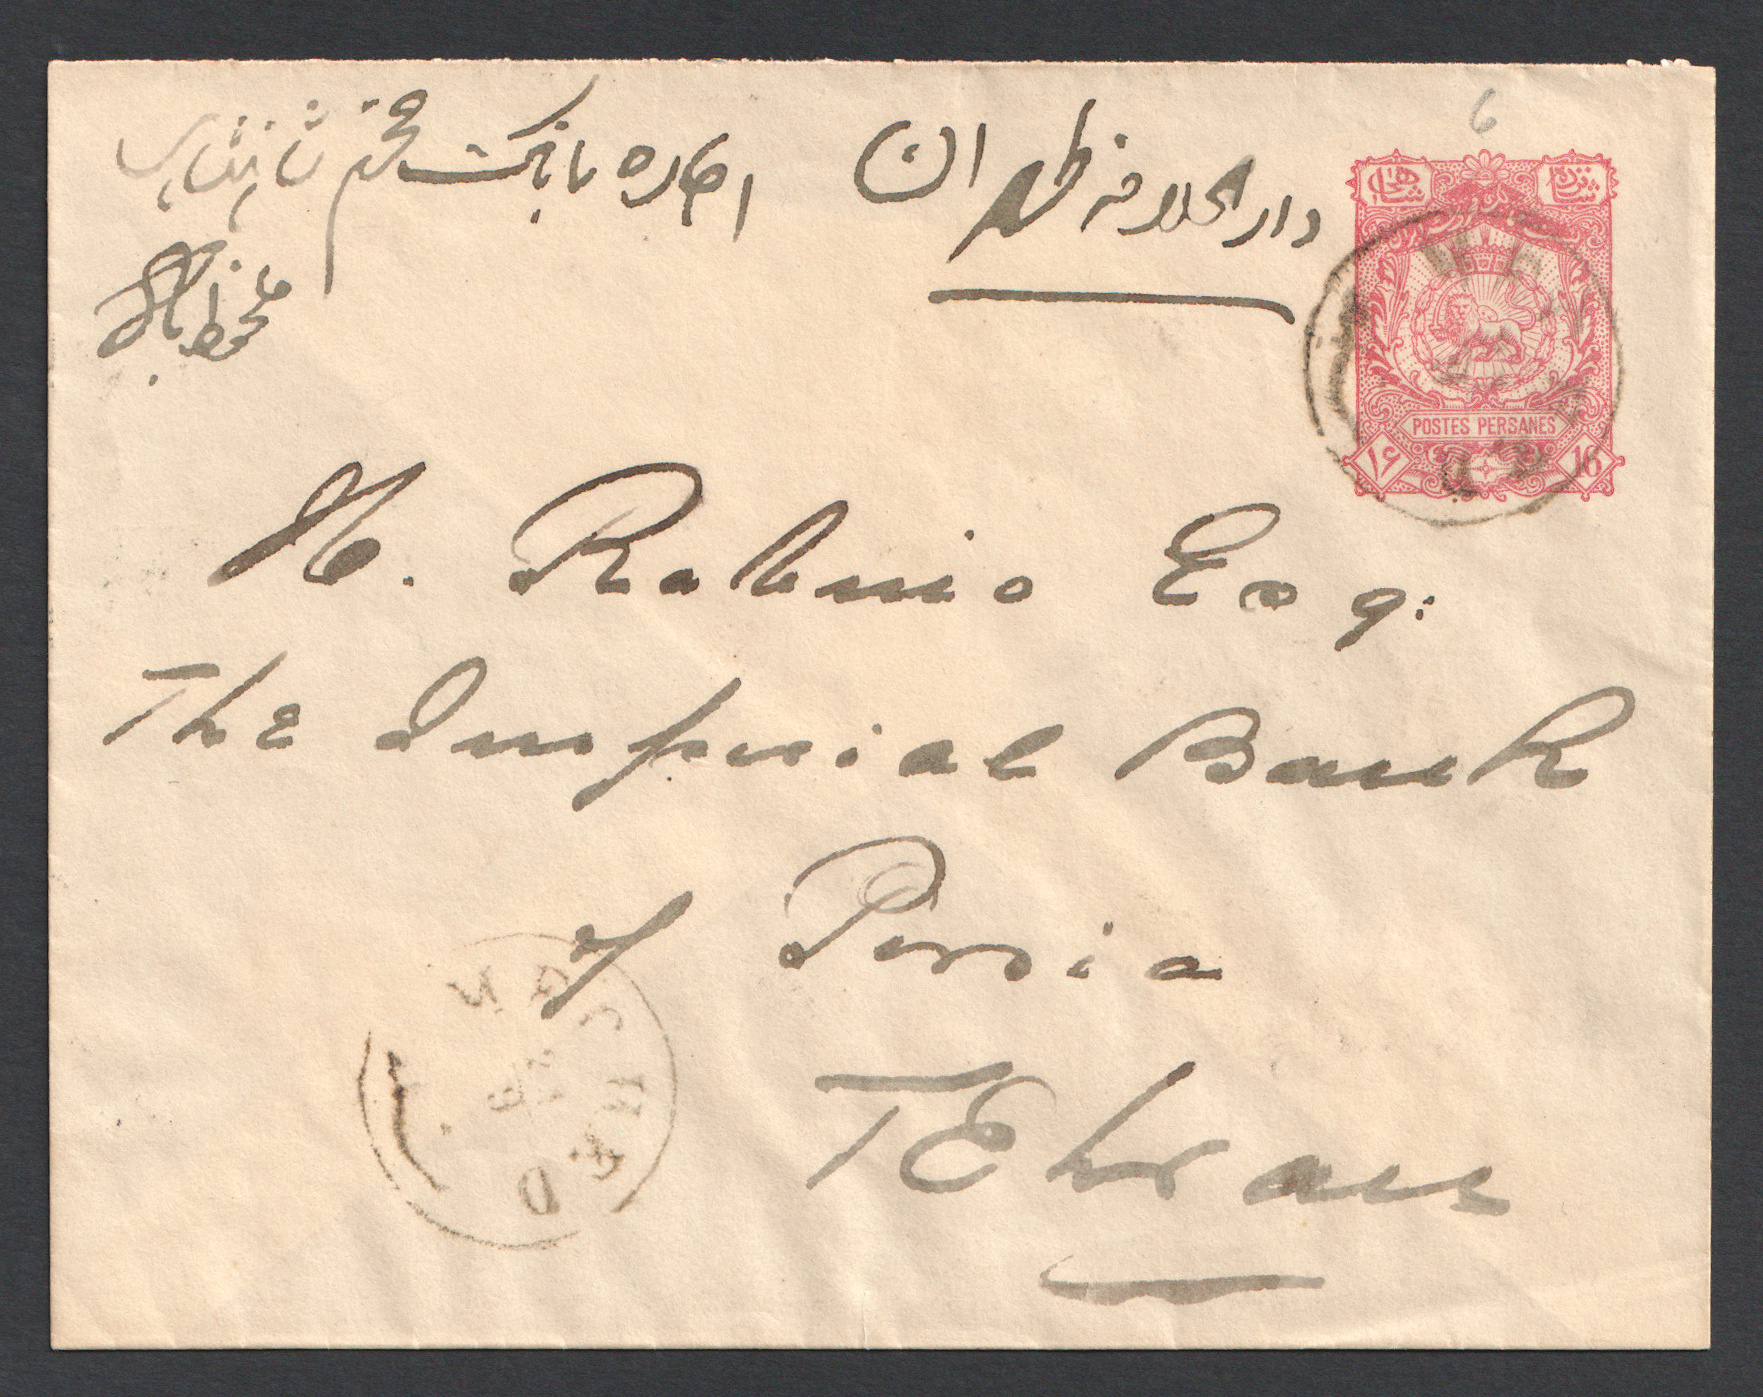 6
دار الخلافه طهران
اداره بانک محترم شاهنشاهی
شانزده شاهی
POSTES PERSANES
۱۶ 16
H. Rabino Esq:
The Imperial Bank
of Persia
TEhran
MECHED